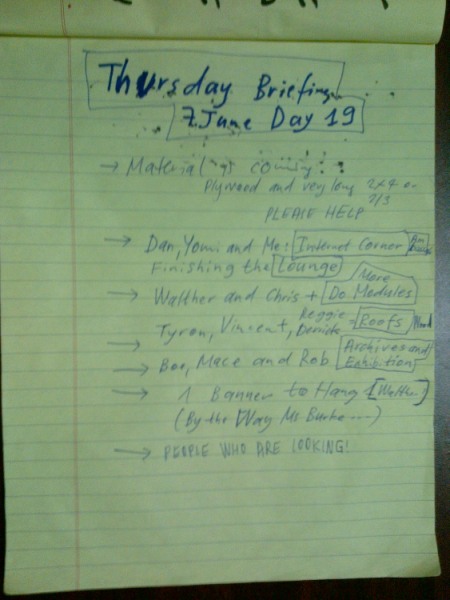 Thursday Briefing
7 June Day 19
→ Material is coming:
Plywood and very long 2x4 or
2/3
PLEASE HELP
→ Dan, Yomi and Me: Internet Corner
Finishing the Lounge
More
→ Walther and Chris + Do Modules
Reggie
→ Tyron, Vincent, Derrick = Roofs
→ Boo, Mace and Rob Archives and Exhibition
→ 1 Banner to Hang [Walther]
(By the Way Ms Burke ....)
→ PEOPLE WHO ARE LOOKING!